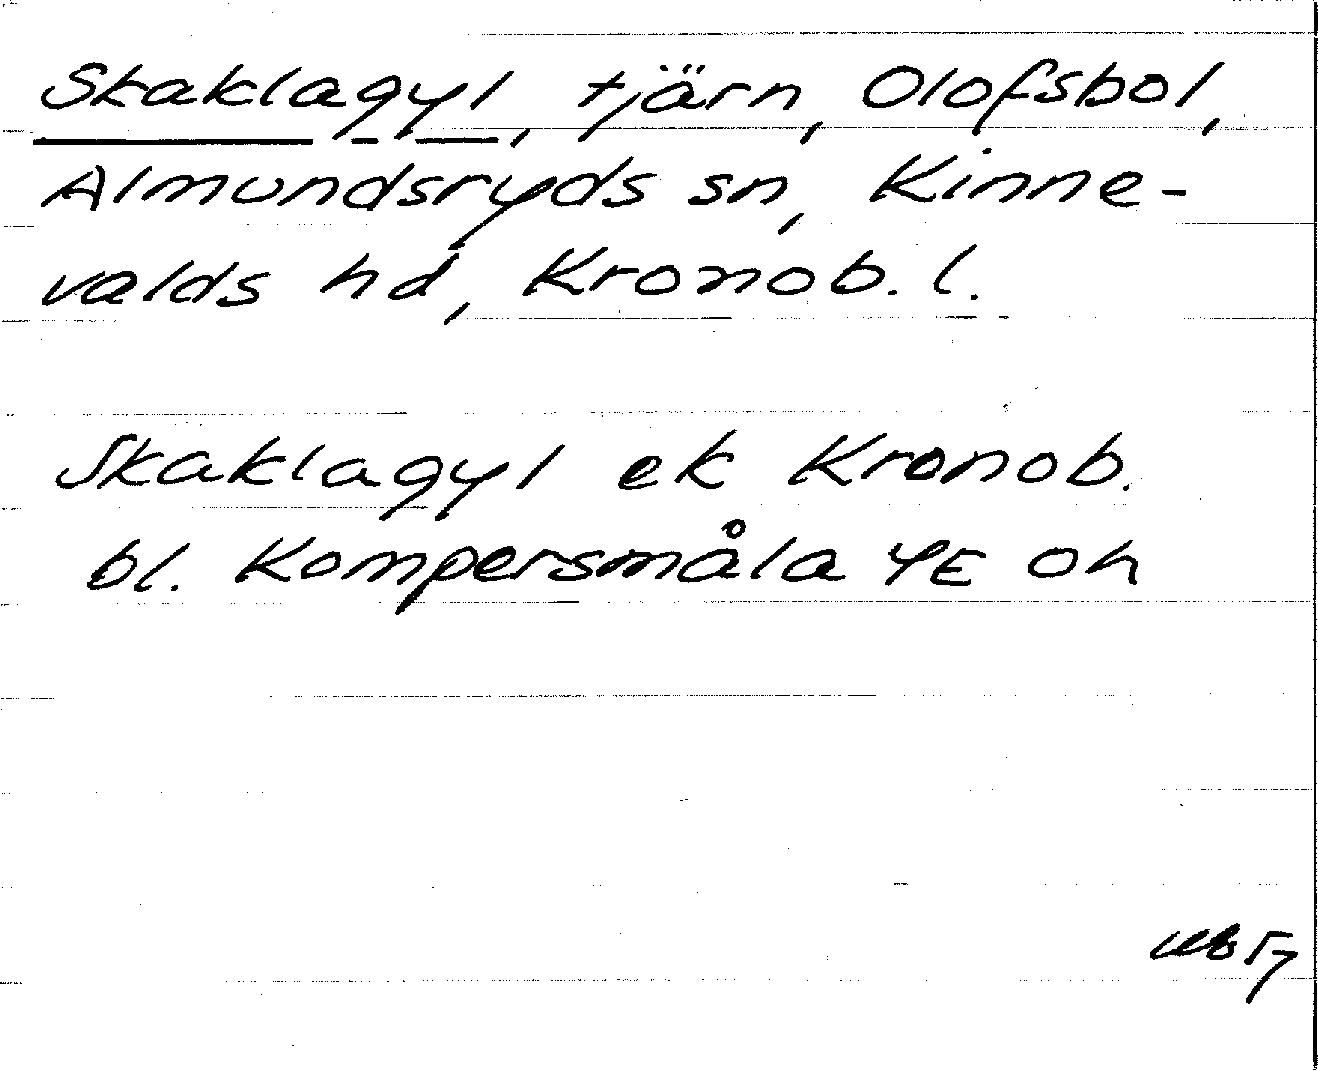 Skaklagyl, tjärn, Olofsbol,
Almundsryds sn, Kinne-
valds hd, Kronob. l.
Skaklagyl ek Kronob.
bl. Kompersmåla 4E oh